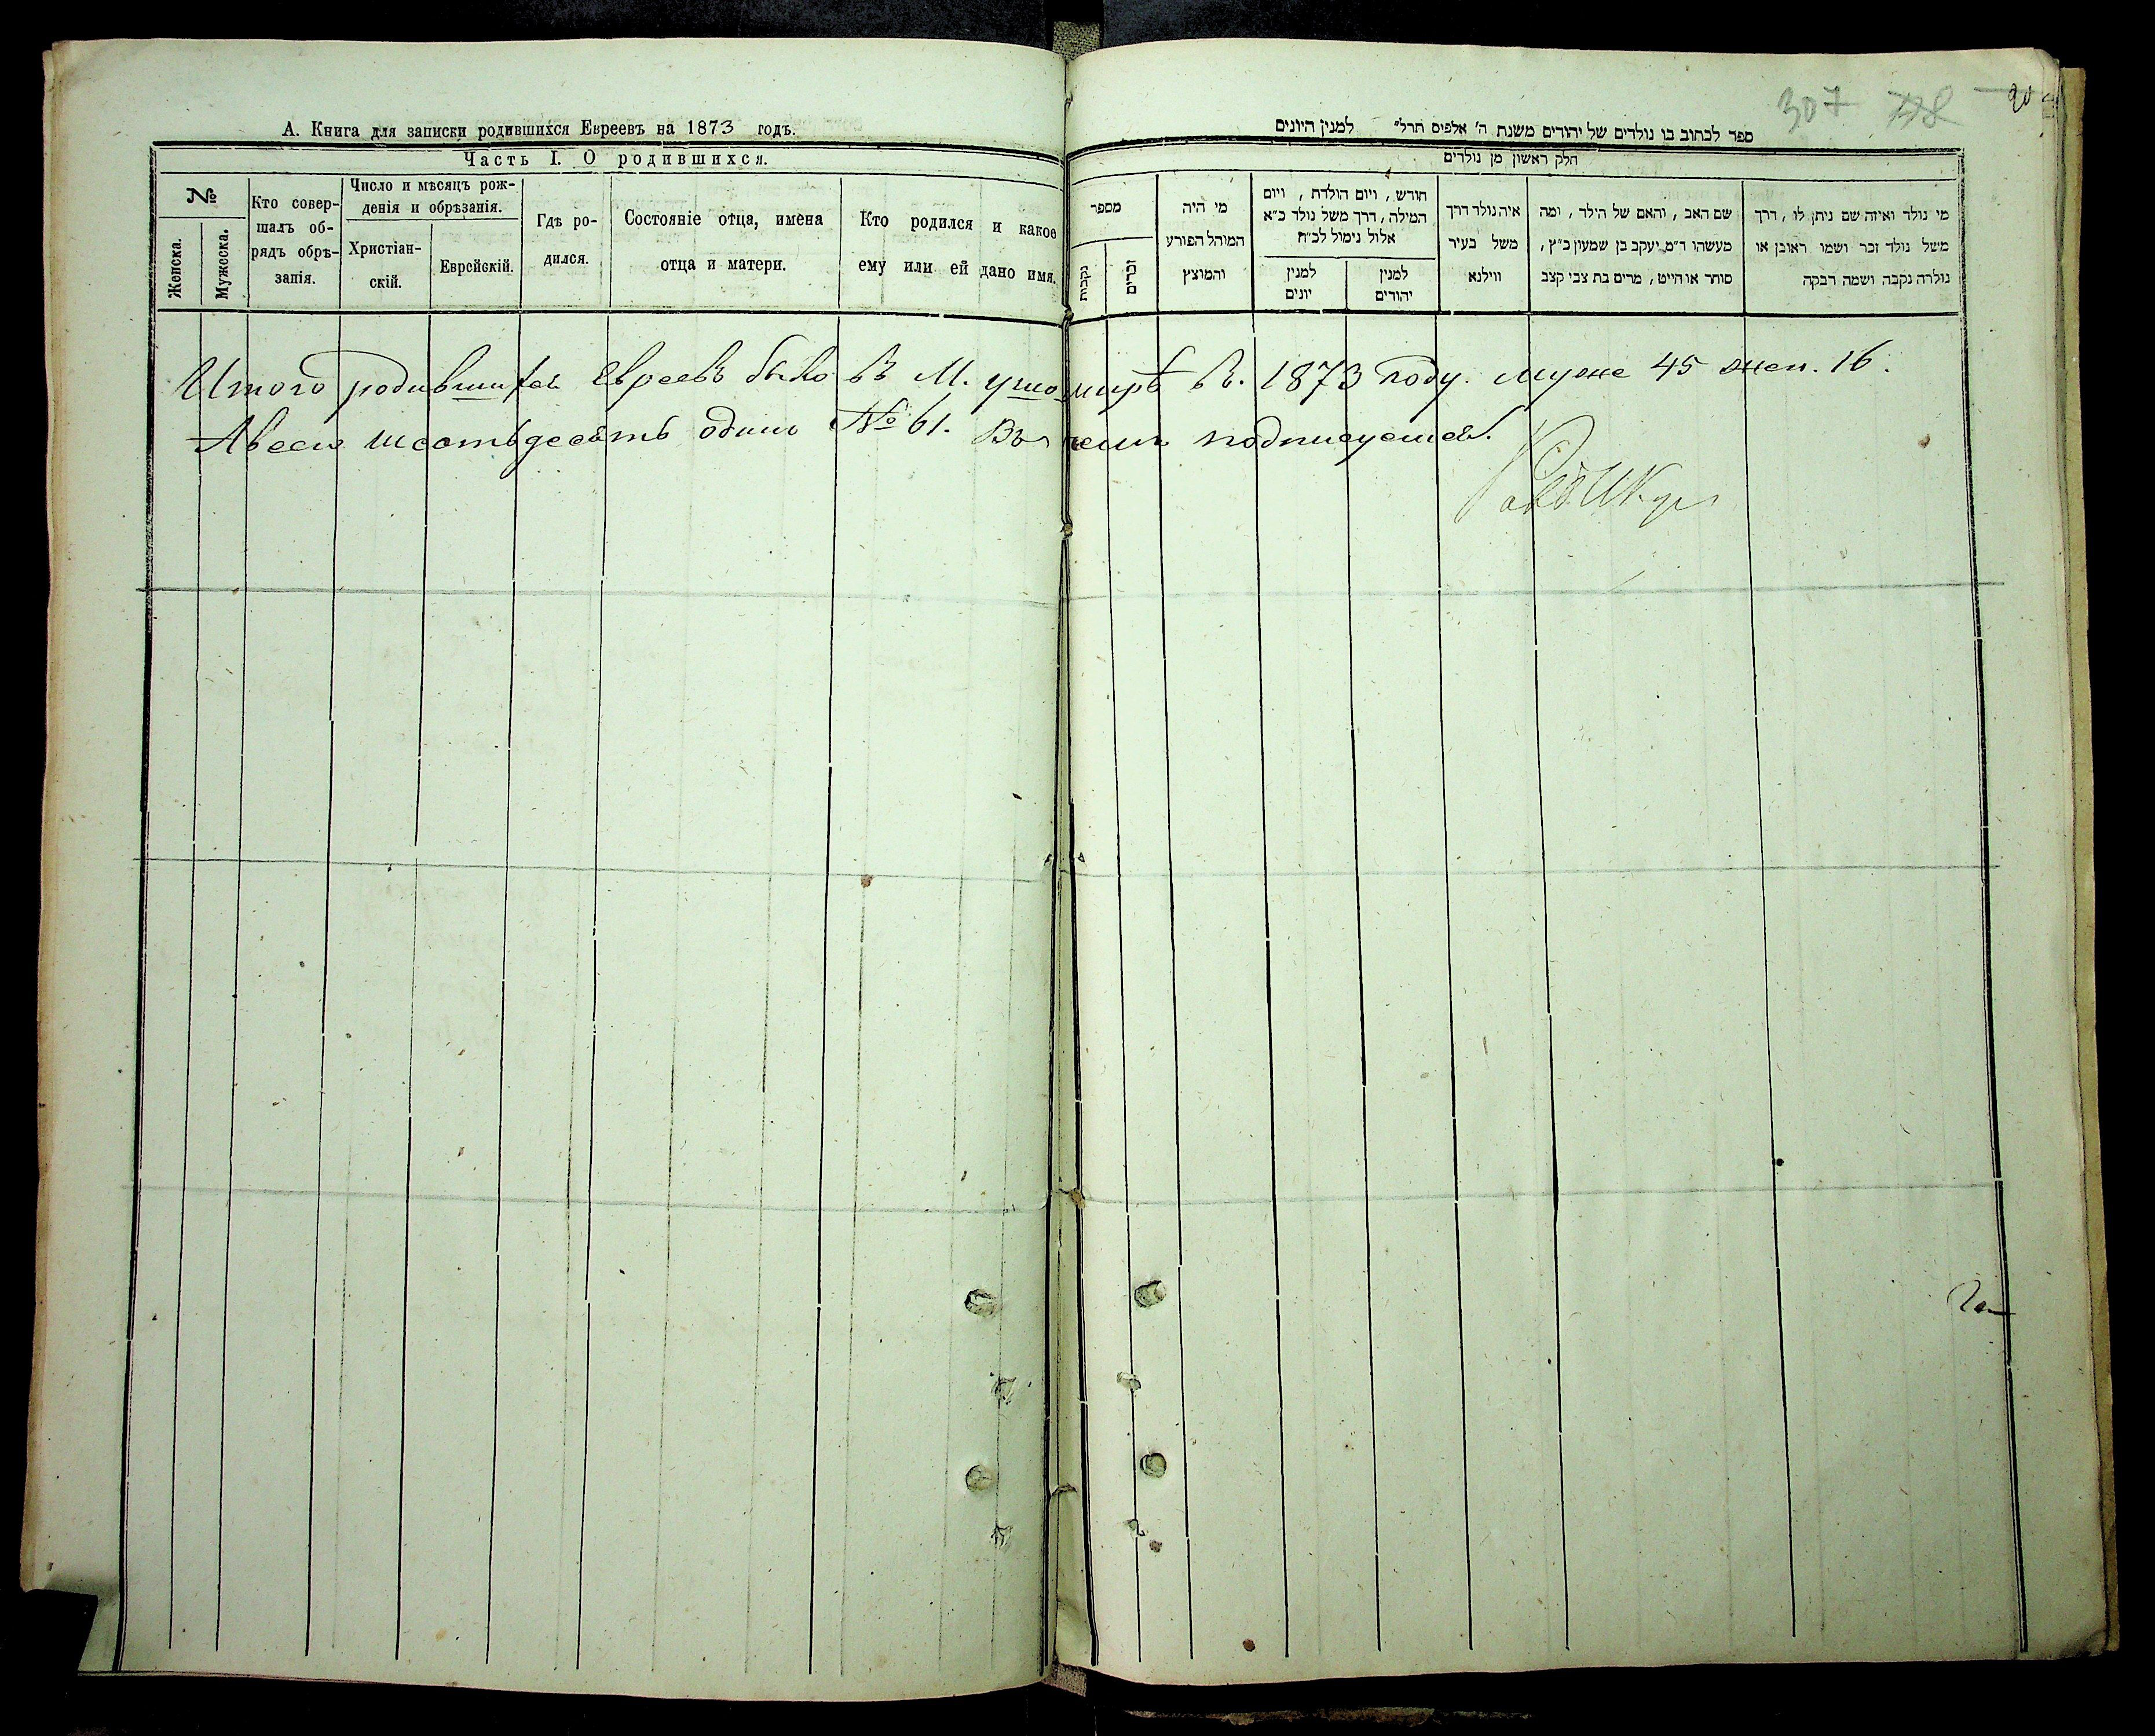 А. Книга для записки родившихся Евреевъ на 1873 годъ.
Часть I. О родившихся.
№
Женска.
Мужеска.
Кто совер-
шалъ об-
рядъ обрѣ-
занія.
Число и мѣсяцъ рож-
денія и обрѣзанія.
Христіан-
скій.
Еврейскій.
Гдѣ ро-
дился.
Состояніе отца, имена
отца и матери.
Кто родился и какое
ему или ей дано имя.
307
ספר לכתוב בו נולדים של יהודים משנת ה' אלפים תרל" למנין היונים
חלק ראשון מן נולדים
מספר
נקבות
זכרים
מי היה
המוהל הפורע
והמוצץ
חודש, ויום הולדת, ויום
המילה, דרך משל נולד כ"א
אלול נימול לכ"ח
למנין
יונים
למנין
יהודים
איה נולד דרך
משל בעיר
ווילנא
שם האב, והאם של הילד, ומה
מעשהו ד"מ, יעקב בן שמעון כ"ץ,
סוחר או חייט, מרים בת צבי קצב
מי נולד ואיזה שם ניתן לו, דרך
משל נולד זכר ושמו ראובן או
נולדה נקבה ושמה רבקה
Итого родившихся Евреевъ было въ М. ушомирѣ въ. 1873 году. муже 45 жен. 16.
Авсего шестьдесятъ одинъ № 61. Въ чемъ подписуемся.